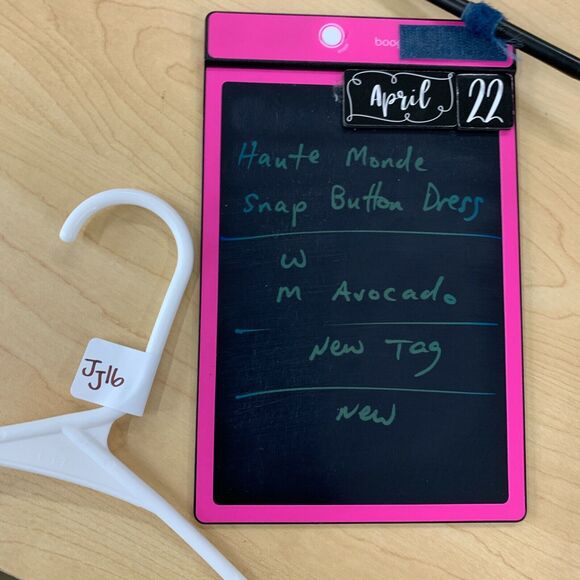 boog
April 22
Haute Monde
Snap Button Dress
W
M Avocado
New Tag
New
JJ16